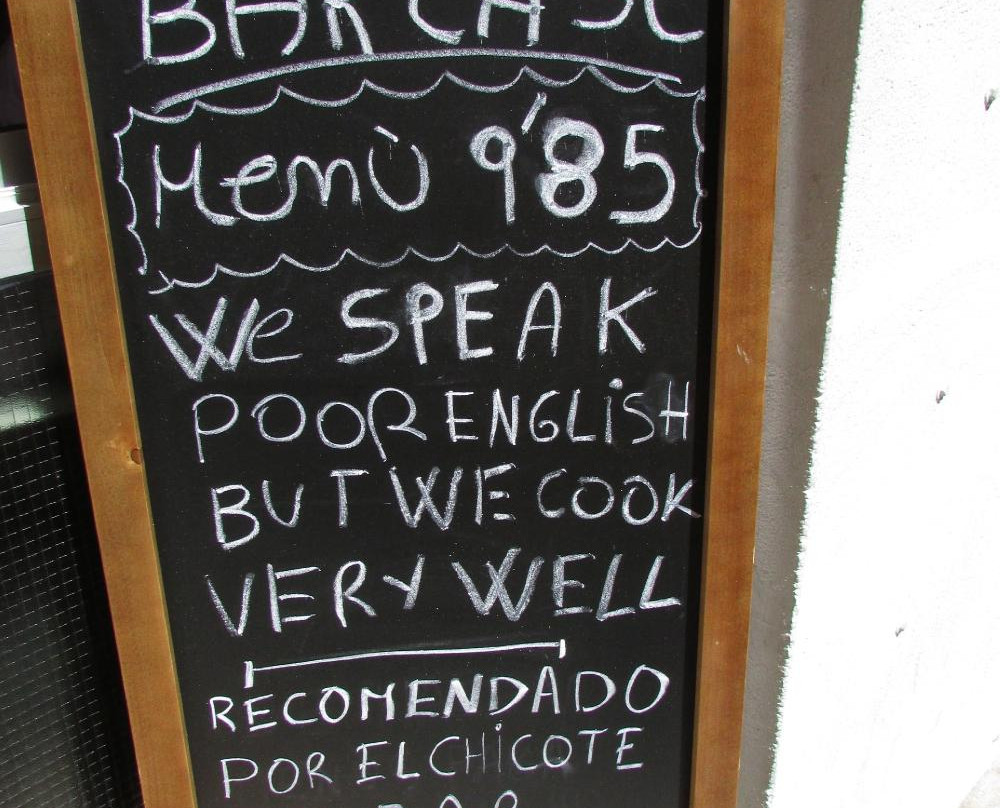 BAR
Menù 9'85
We SPEAK
POOR ENGLiSH
BUT WE COOK
VERY WELL
RECOMENDADO
POR EL CHiCOTE